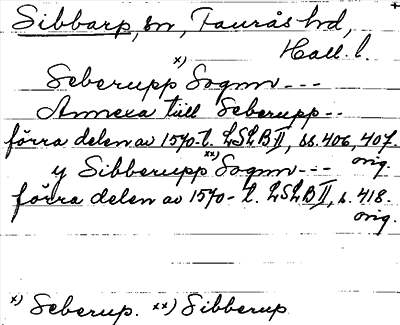 Sibbarp, sn, Faurås hd,
Hall. l.
Seberupp x) Sognn ---
Annexa tiill Seberupp --
förra delen av 1570-t. LSLB II, ss. 406, 407.
orig.
y Sibberupp xx) Sognn ---
förra delen av 1570-t. LSLB II, s. 418.
orig.
x) Seberup. xx) Sibberup